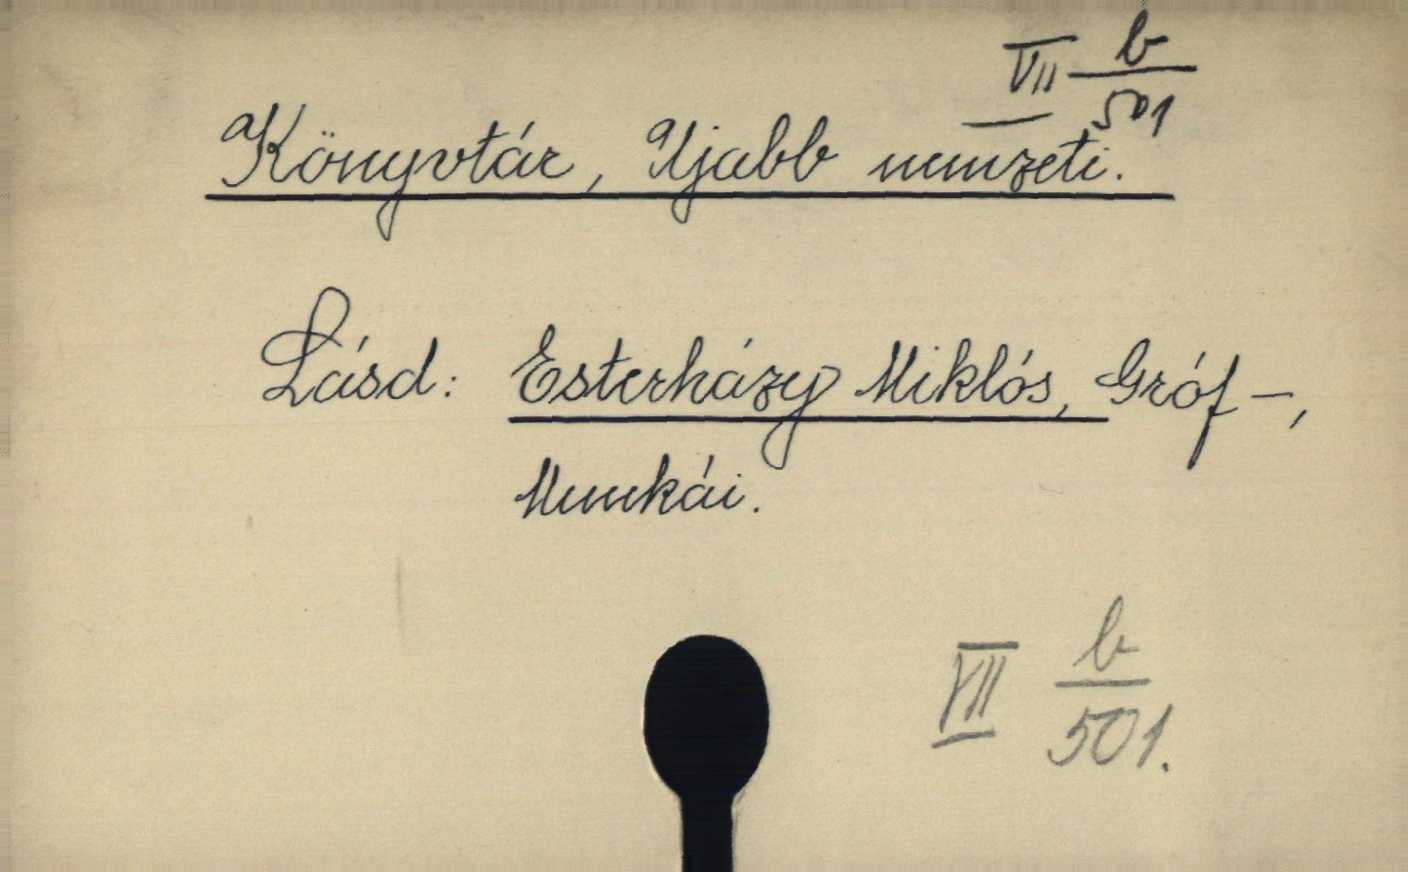 VII b/501
Könyvtár, Ujabb nemzeti.
Lásd: Esterházy Miklós, Gróf –,
Munkái.
VII b/501.